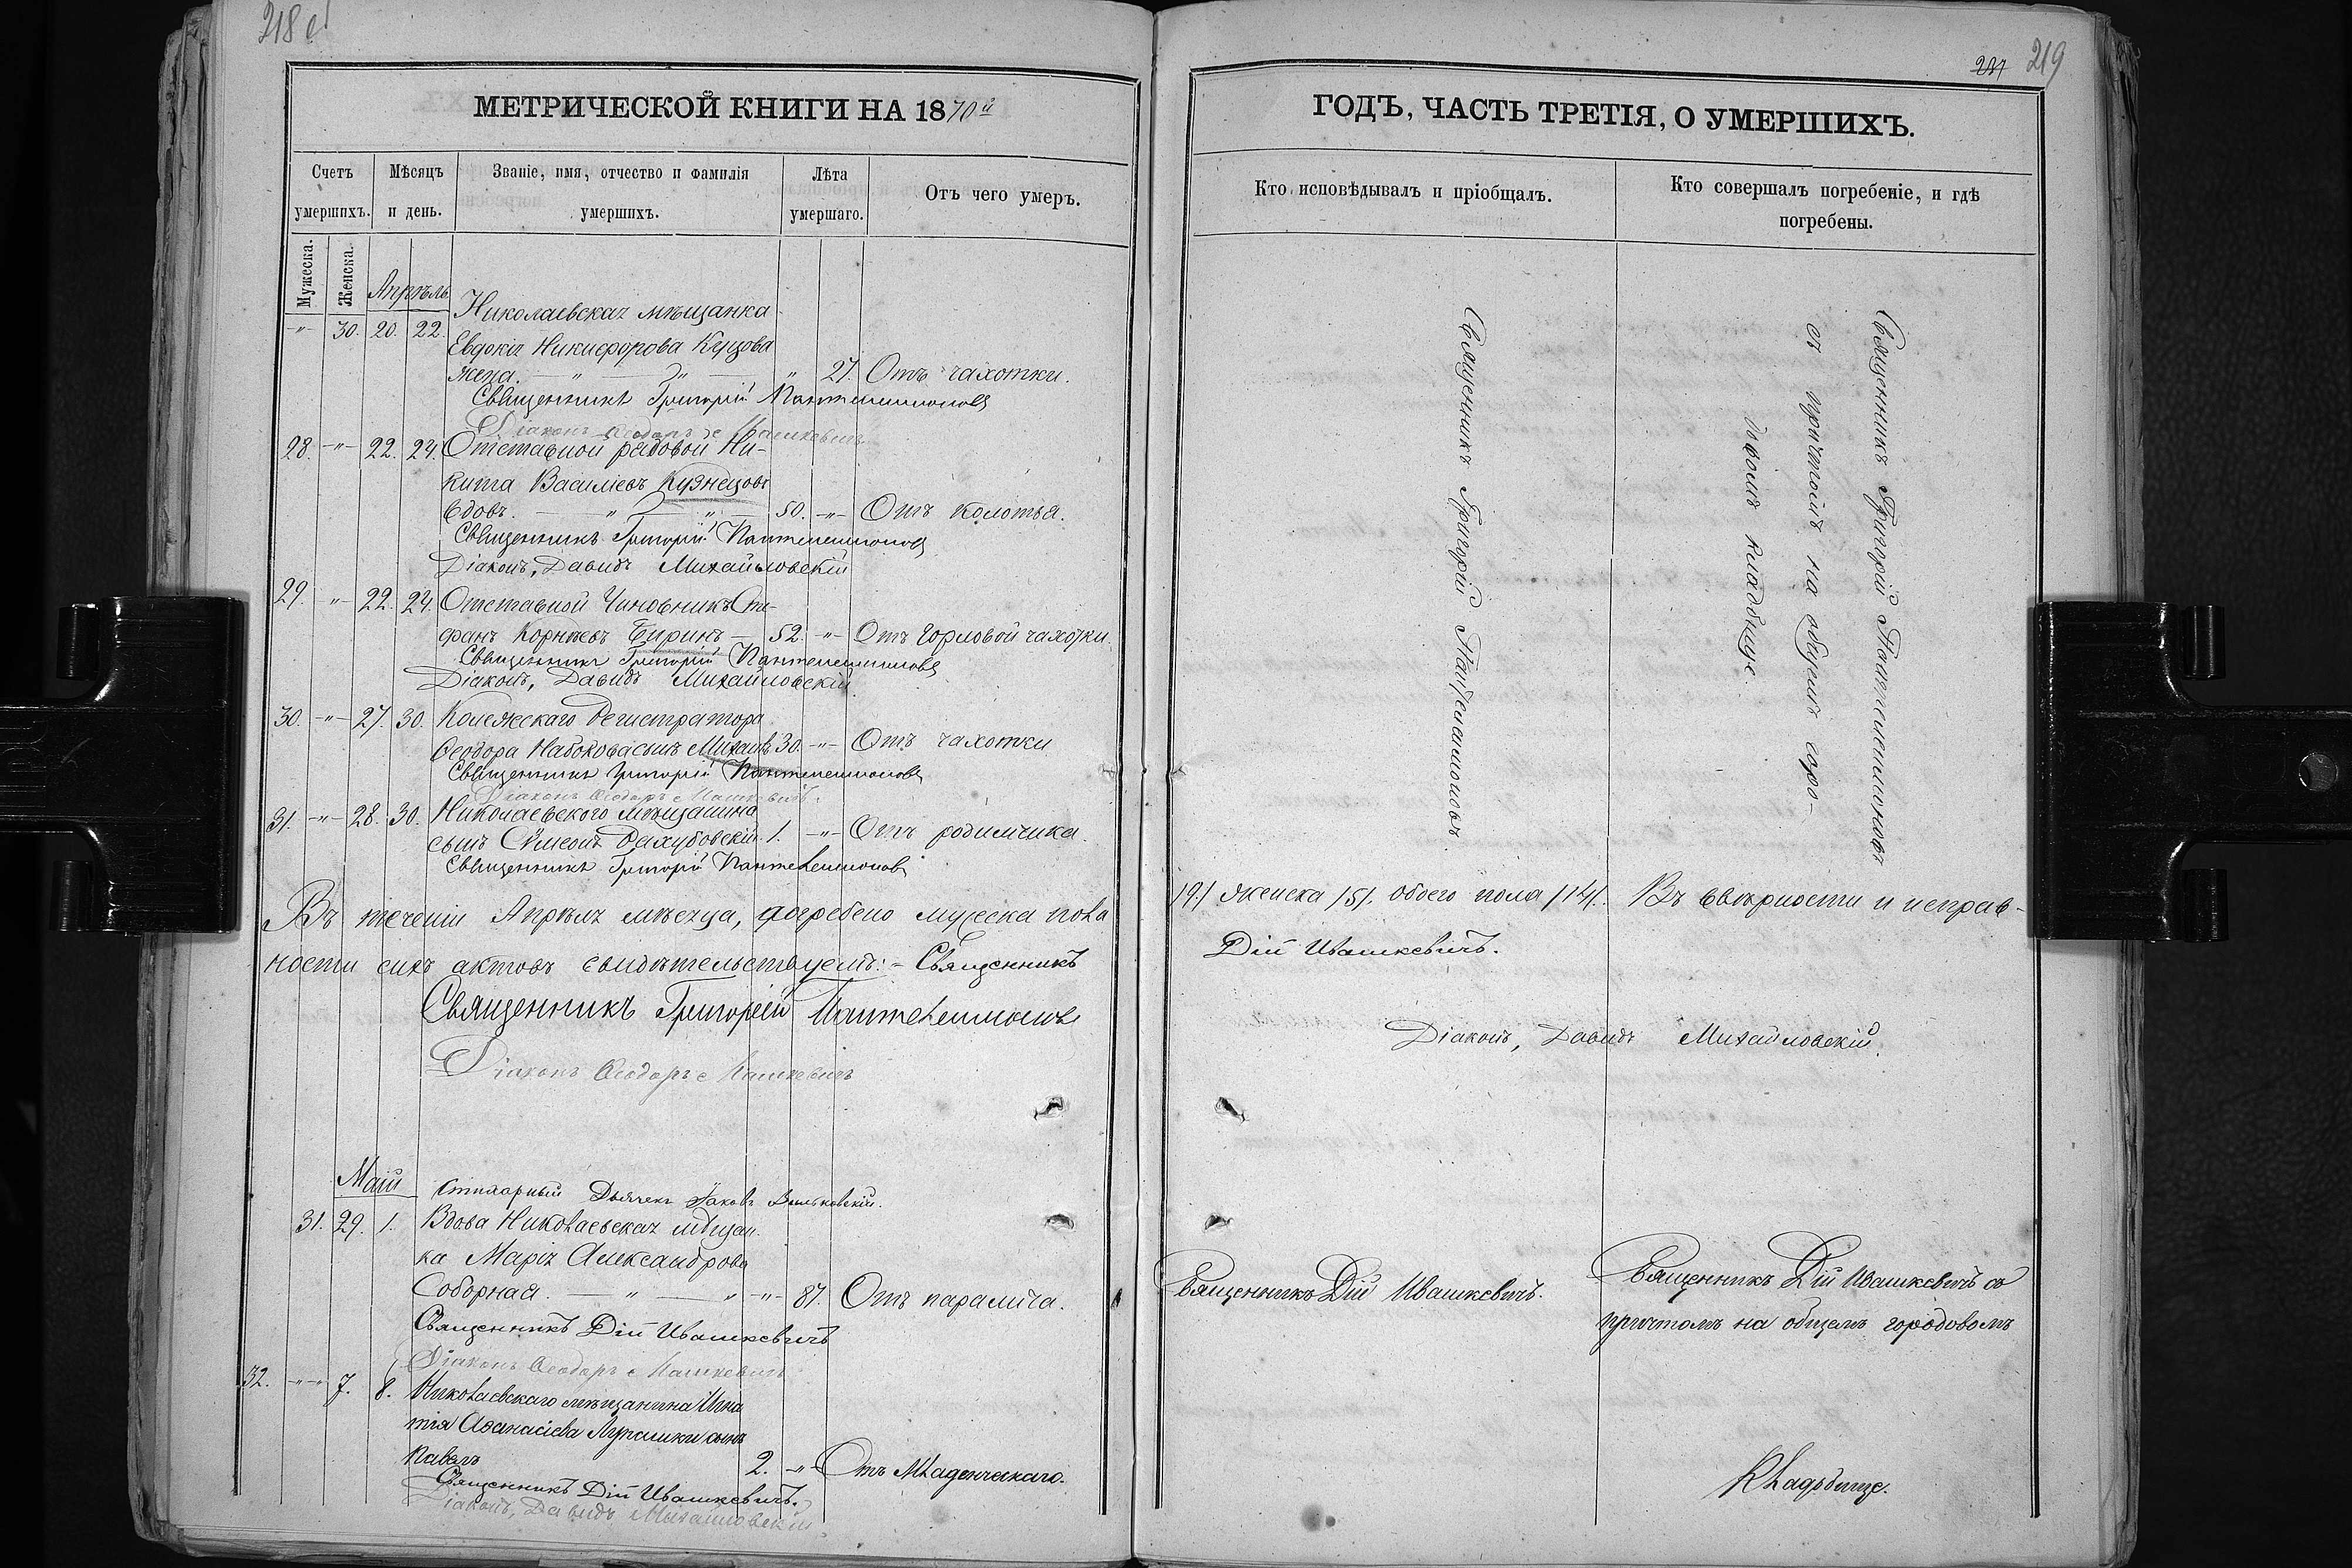 218 об
МЕТРИЧЕСКОЙ КНИГИ НА 1870й
Счетъ умершихъ.
Мѣсяцъ и день.
Званіе, имя, отчество и фамилія умершихъ.
Лѣта умершаго.
Отъ чего умеръ.
Мужеска.
Женска.
Апрѣль
-"- 30. 20. 22. Николаевская мѣщанка
Евдокія Никифорова Купцова
жена. — " — " — " 27. Отъ чахотки.
Священникъ Григорій Пантелеимоновъ
Діаконъ Ѳеодоръ
28. -"- 22. 24. Отставной рядовой Ни-
кита Василіевъ Кузнецовъ
вдовъ. — " — " — 50. -"- Отъ колотья.
Священникъ Григорій Пантелеимоновъ
Діаконъ, Давидъ Михайловскій
29. -"- 22. 24. Отставной Чиновникъ Сте-
фанъ Корнѣевъ Биринъ — 52. -"- Отъ горловой чахотки.
Священникъ Григорій Пантелеимоновъ
Діаконъ, Давидъ Михайловскій.
30. -"- 27. 30. Колежскаго Регистратора
Ѳеодора Набокова сынъ Михаилъ 30. -"- Отъ чахотки
Священникъ Григорій Пантелеимоновъ
Діаконъ Ѳеодоръ
31. -"- 28. 30. Николаевского мѣщанина
сынъ Симеонъ 1. -"- Отъ родимчика.
Священникъ Григорій Пантелеимоновъ
Въ теченіи Апрѣля мѣсяца, погребено мужеска пола
ности сихъ актовъ свидѣтельствуемъ: - Священникъ
Священникъ Григорій Пантелеимоновъ
Діаконъ Ѳеодоръ
Май
Дьячекъ Іаковъ Вильковскій.
31. 29. 1. Вдова Николаевская мѣщан-
ка Марія Александрова
Соборная. — " — " -"- 87. Отъ паралича.
Священникъ Дій Ивашкевичъ
Діаконъ Ѳеодоръ
32. -"-"- 7. 8. Николаевскаго мѣщанина Игна
тія Аѳанасіева сынъ
Павелъ 2. -"- Отъ Младенческаго.
Священникъ Дій Ивашкевичъ.
Діаконъ, Давидъ Михайловскій.
219
ГОДЪ, ЧАСТЬ ТРЕТІЯ, О УМЕРШИХЪ.
Кто исповѣдывалъ и пріобщалъ.
Кто совершалъ погребеніе, и гдѣ
погребены.
Священникъ Григорій Пантелеимоновъ
Священникъ Григорій Пантелеимоновъ
съ причтомъ на общемъ горо-
довомъ кладбищѣ.
/9/ женска /5/. обоего пола /14/. Въ вѣрности и исправ-
Дій Ивашкевичъ.
Діаконъ, Давидъ Михайловскій.
Священникъ Дій Ивашкевичъ.
Священникъ Дій Ивашкевичъ съ
причтомъ на общемъ городовомъ
Кладбищѣ.